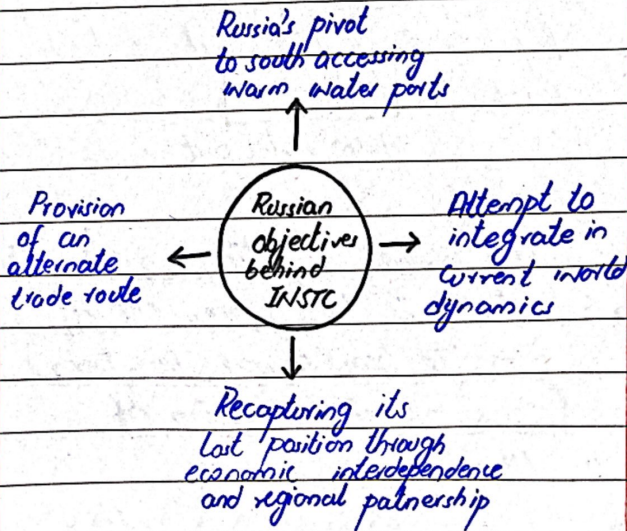 Russia's pivot
to south accessing
warm water ports
Provision
of an
alternate
trade route
Russian
objectives
behind
INSTC
Attempt to
integrate in
current world
dynamics
Recapturing its
lost position through
economic interdependence
and regional patnership